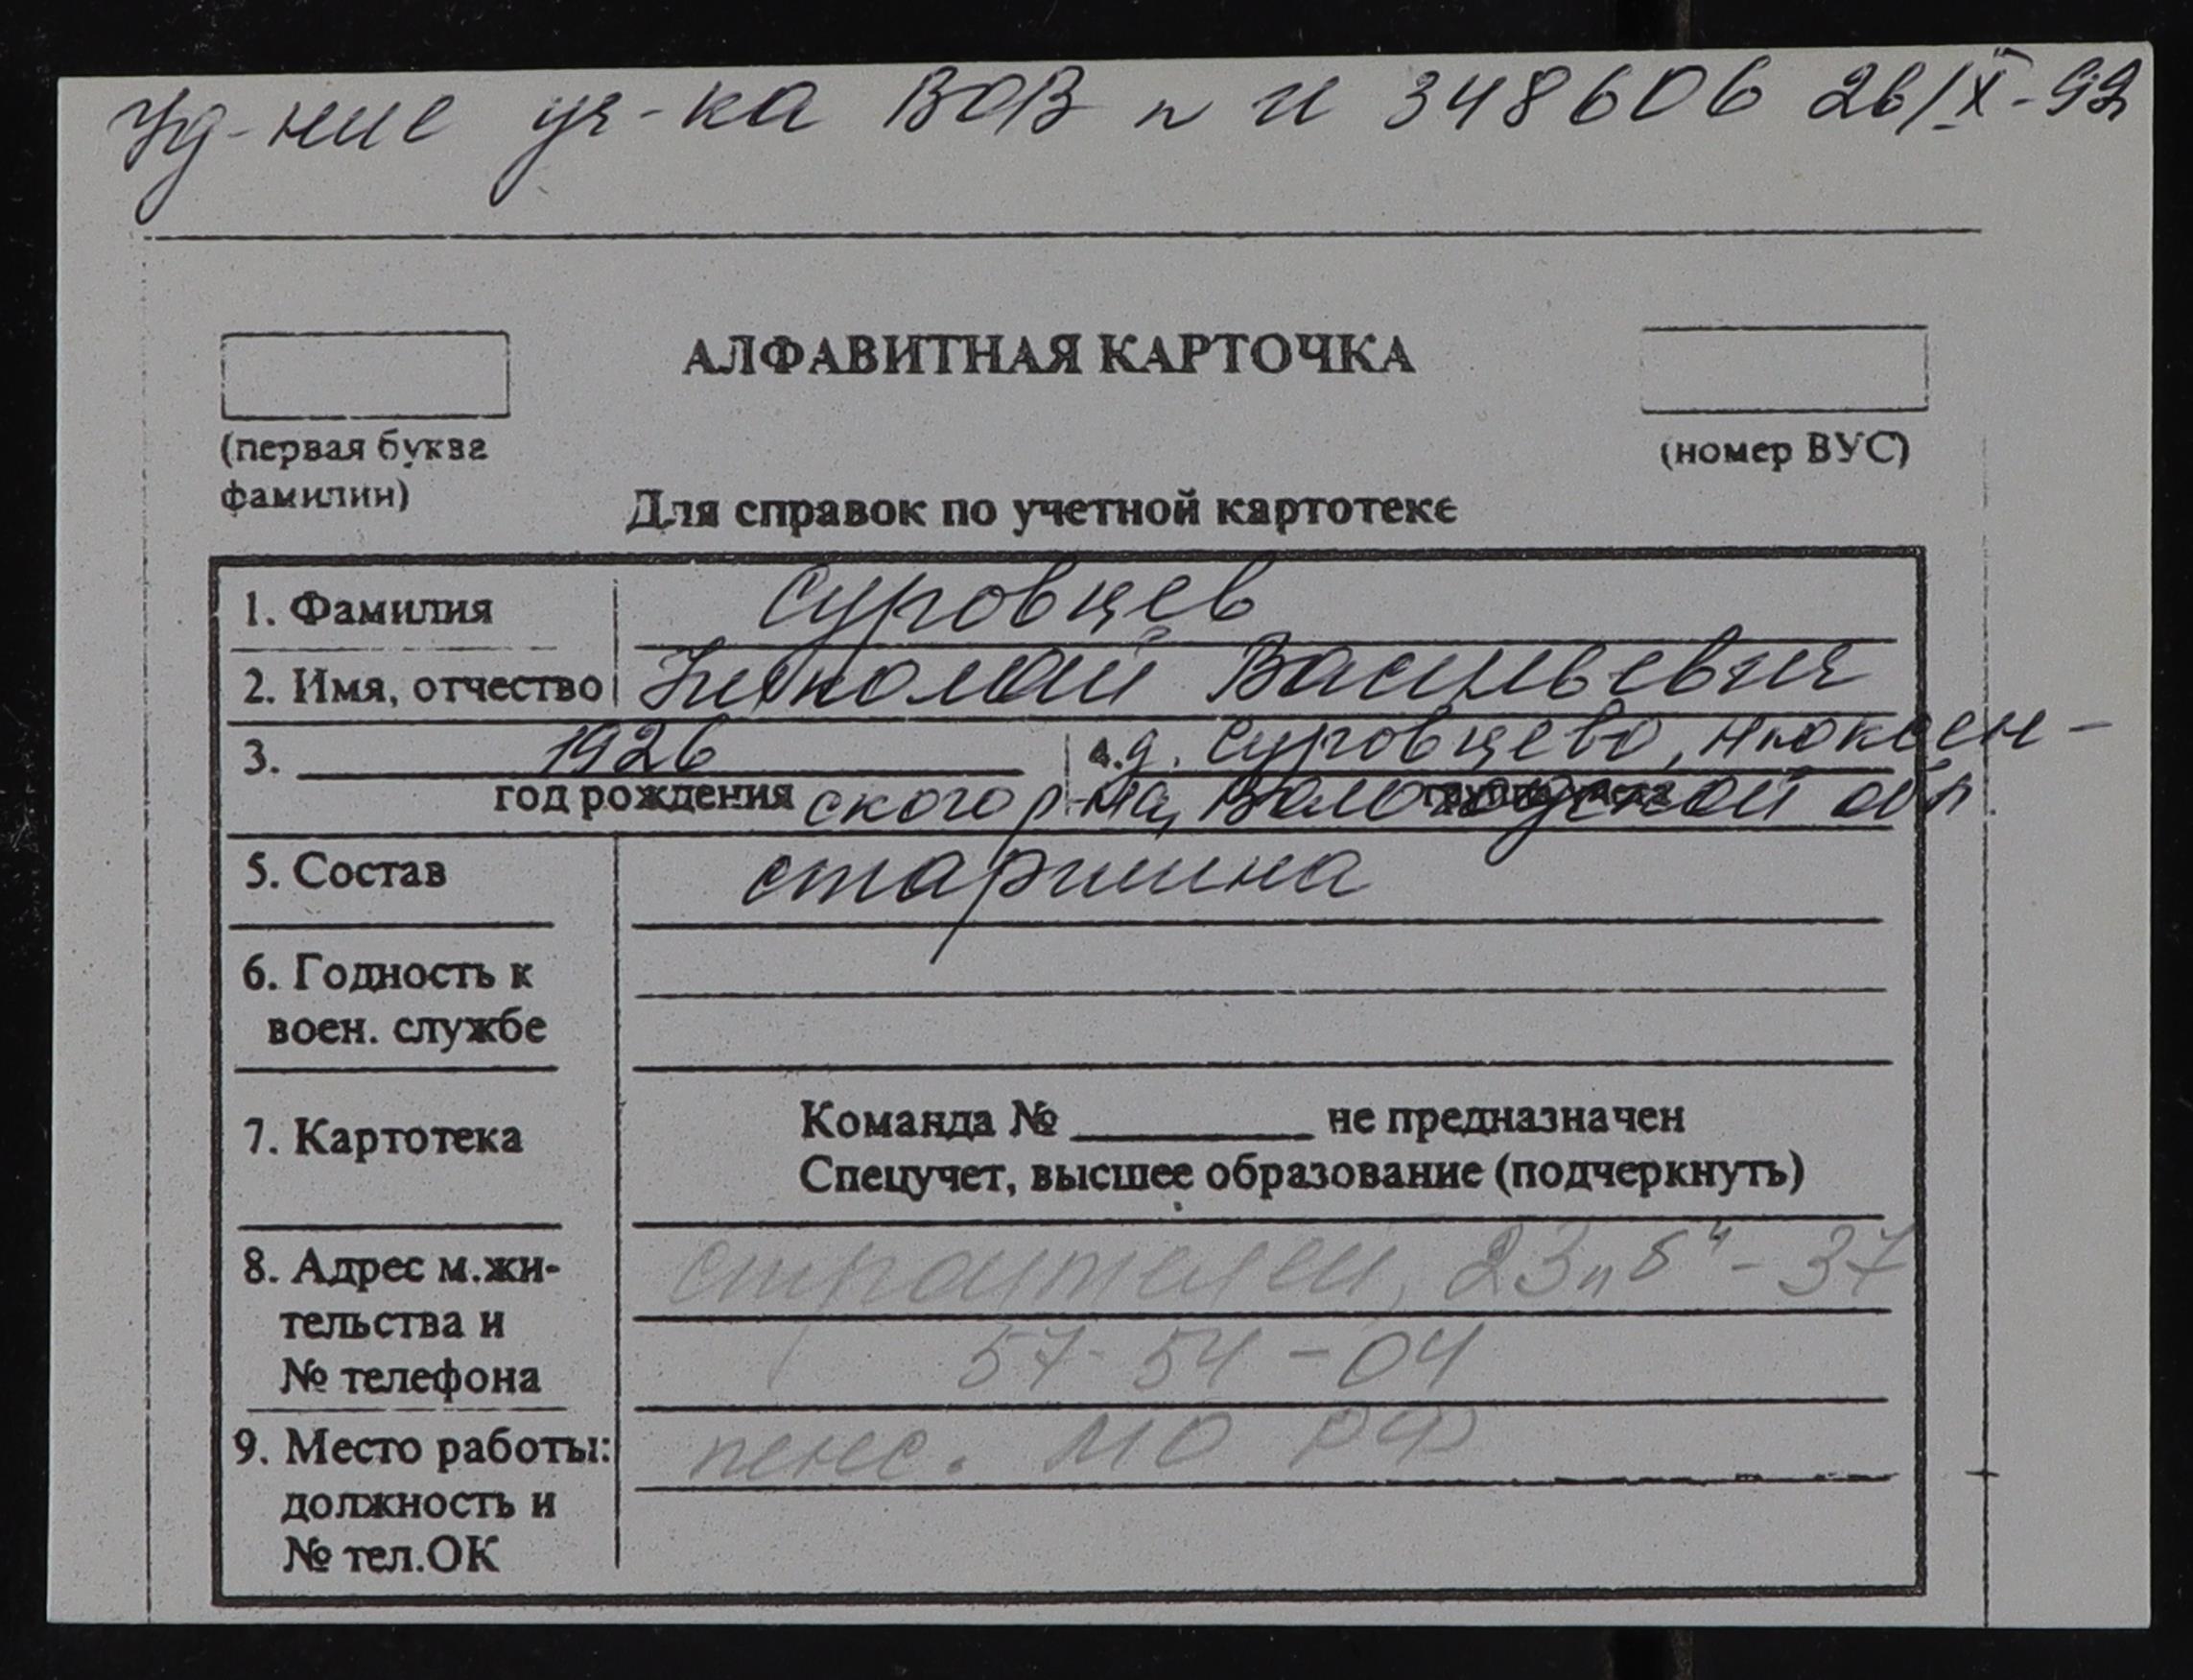 Уд-ние уч-ка ВОВ п И 348606 26/IX-92
АЛФАВИТНАЯ КАРТОЧКА
(первая буква
фамилии)
(номер ВУС)
Для справок по учетной картотеке
1. Фамилия Суровцев
2. Имя, отчество Николай Васильевич
3. 1926 д. Суровцево, Нюксен-
год рождения ского р-на, Вологодской обл.
5. Состав старшина
6. Годность к
воен. службе
7. Картотека
Команда № ________ не предназначен
Спецучет, высшее образование (подчеркнуть)
8. Адрес м.жи-
тельства и
№ телефона
Строителей, 23 "б" - 37
57-54-04
9. Место работы:
должность и
№ тел.ОК
пенс. МО РФ